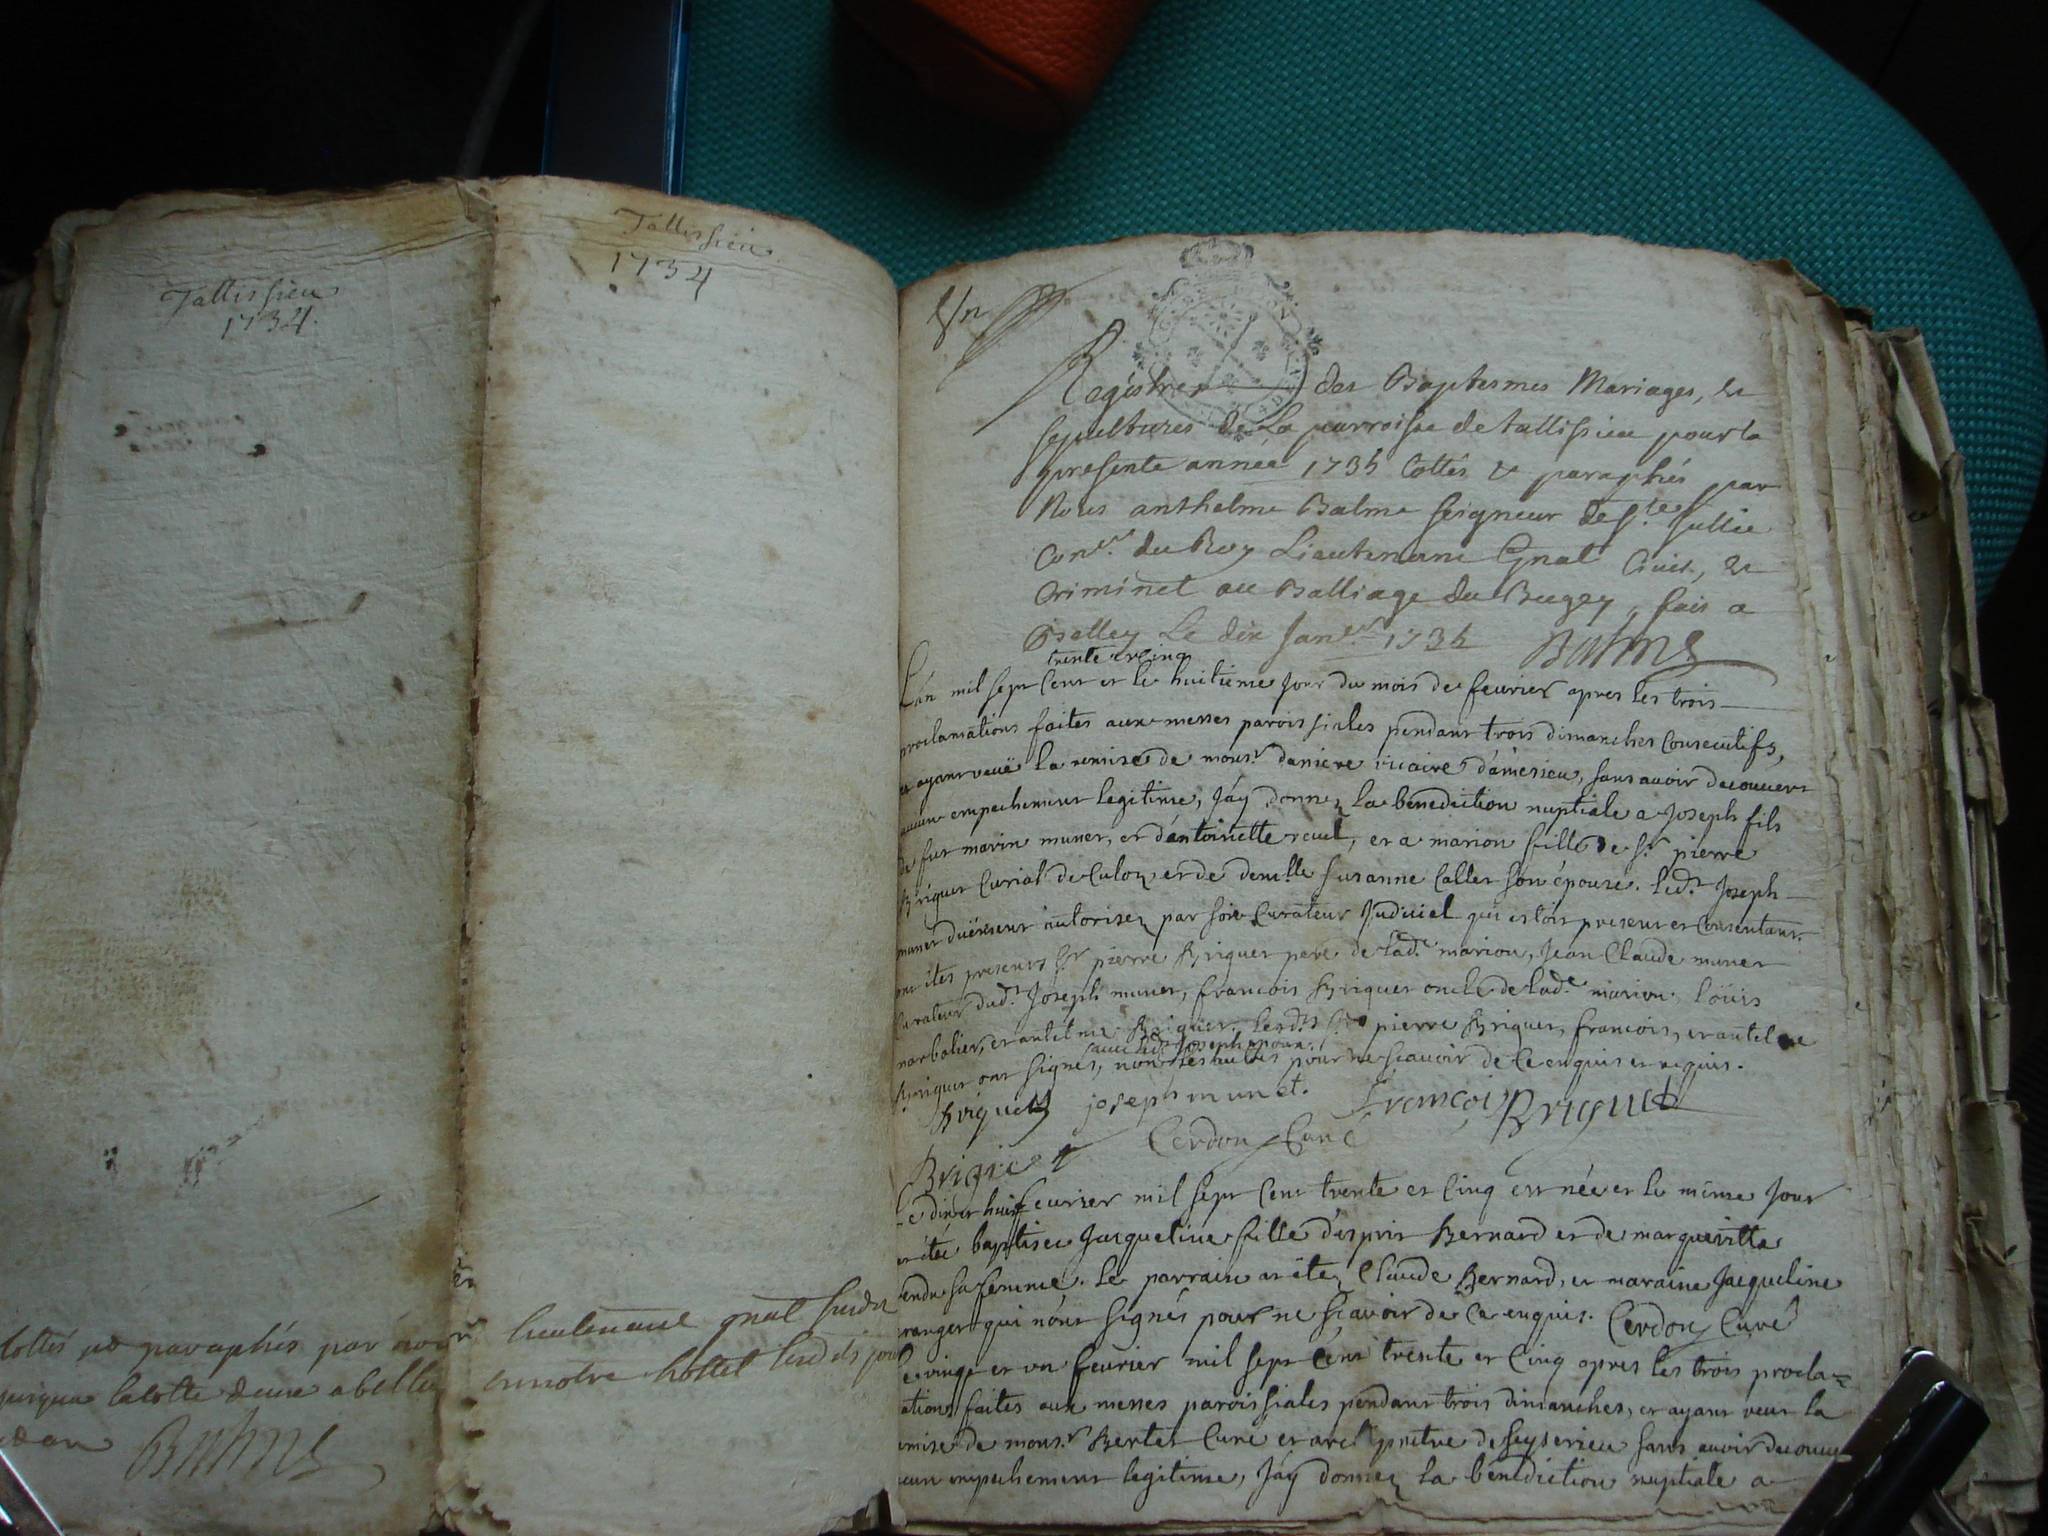 Tallissieu
1734.
Tallissieu
1734
cottés et paraphés par nous
lieutenant gnal susdit
jusqua la cotte deux a belley
en notre hostel lesdits jour
et an
Balme
Un
Registre des Baptesmes Mariages, et
sepultures de La parroisse de tallissieu pour la
presente année 1735 Cottés et paraphés par
Nous anthelme Balme seigneur de Ste Jullie
Conser du Roy Lieutenant Gnal Civil, et
Criminel au Balliage du Bugey, fait a
Belley Le dix Janer 1735 Balme
trente et cinq
L'an mil sept Cent et le huitieme jour du mois de fevrier apres les trois
proclamations faites aux messes paroissiales pendant trois dimanches Consecutifs,
et ayant veüe la remise de monsr daniere vicaire d'amesieu, sans avoir decouvert
aucun empechement legitime, J'ay donnez la benediction nuptiale a Joseph fils
de fut marin munet, et d'antoinette revel, et a marion fille de Sr pierre
Briquet Curial de Culoz et de demlle susanne Callet son épouse. ledt Joseph
munet düement autorisez par son Curateur Judiciel qui estoit present et Consentant.
ont étés presents Sr pierre Briquet pere de lade marion, Jean Claude munet
Curateur dudt Joseph munet, francois Briquet oncle de lade marion, Loüis
marbolier, et antelme Briquet. lesdts Srs pierre Briquet, francois, et antelme
avec ledt Joseph epoux
Briquet ont signés, non les autres pour ne scavoir de Ce enquis et requis.
Briquet joseph munet. François Briquet
Briquet Cerdon Curé
Le dix et huit feuvrier mil sept Cent trente et Cinq est née et le même Jour
a étée baptisee Jacqueline fille d'esprit Bernard et de margueritte
sa femme. Le parrain a étez Claude Bernard, et maraine Jacqueline
qui n'ont signés pour ne scavoir de Ce enquis. Cerdon Curé
le vingt et un fevrier mil sept Cent trente et Cinq apres les trois procla=
ations faites aux messes paroissiales pendant trois dimanches, et ayant veüe la
remise de monsr Bertet Curé et archiprêtre de seyserieu sans avoir decouvert
aucun empechement legitime, J'ay donnez la bénédiction nuptiale a